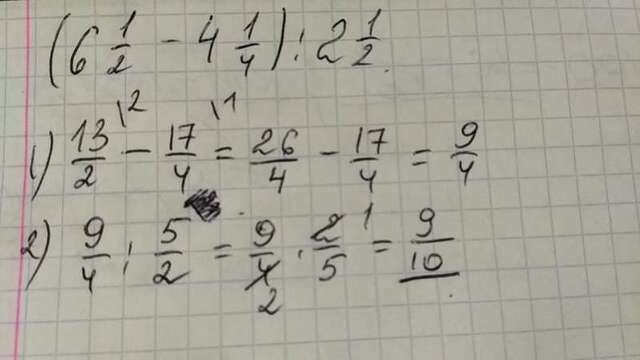 (6 1/2 - 4 1/4) : 2 1/2
1) 13/2 \2 - 17/4 \1 = 26/4 - 17/4 = 9/4
2) 9/4 : 5/2 = 9/4 2 · 2/5 1 = 9/10